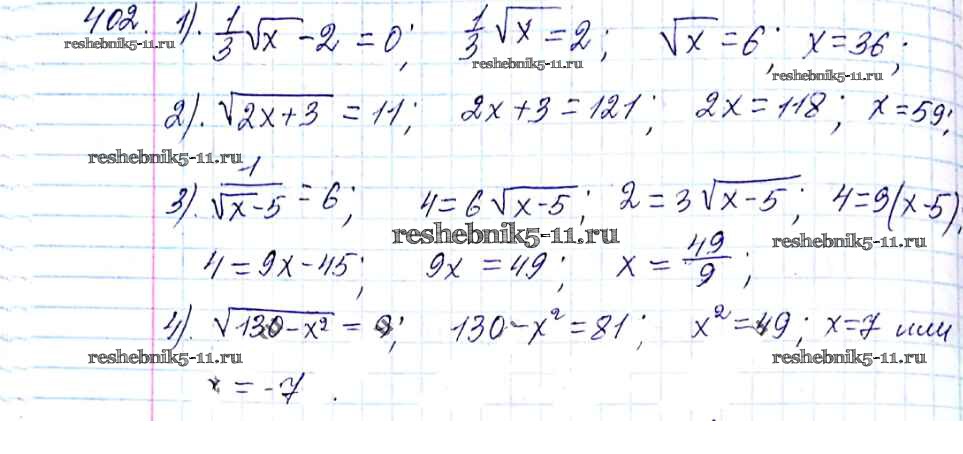 402. 1). 1/3 √x - 2 = 0; 1/3 √x = 2; √x = 6; x = 36;
reshebnik5-11.ru reshebnik5-11.ru reshebnik5-11.ru
2). √(2x+3) = 11; 2x + 3 = 121; 2x = 118; x = 59;
reshebnik5-11.ru
3). 1/(√x-5) = 6; 4 = 6√(x-5); 2 = 3√(x-5); 4 = 9(x-5);
reshebnik5-11.ru reshebnik5-11.ru
4 = 9x - 45; 9x = 49; x = 49/9;
4). √(130-x²) = 9; 130 - x² = 81; x² = 49; x = 7 или
reshebnik5-11.ru reshebnik5-11.ru
x = -7.